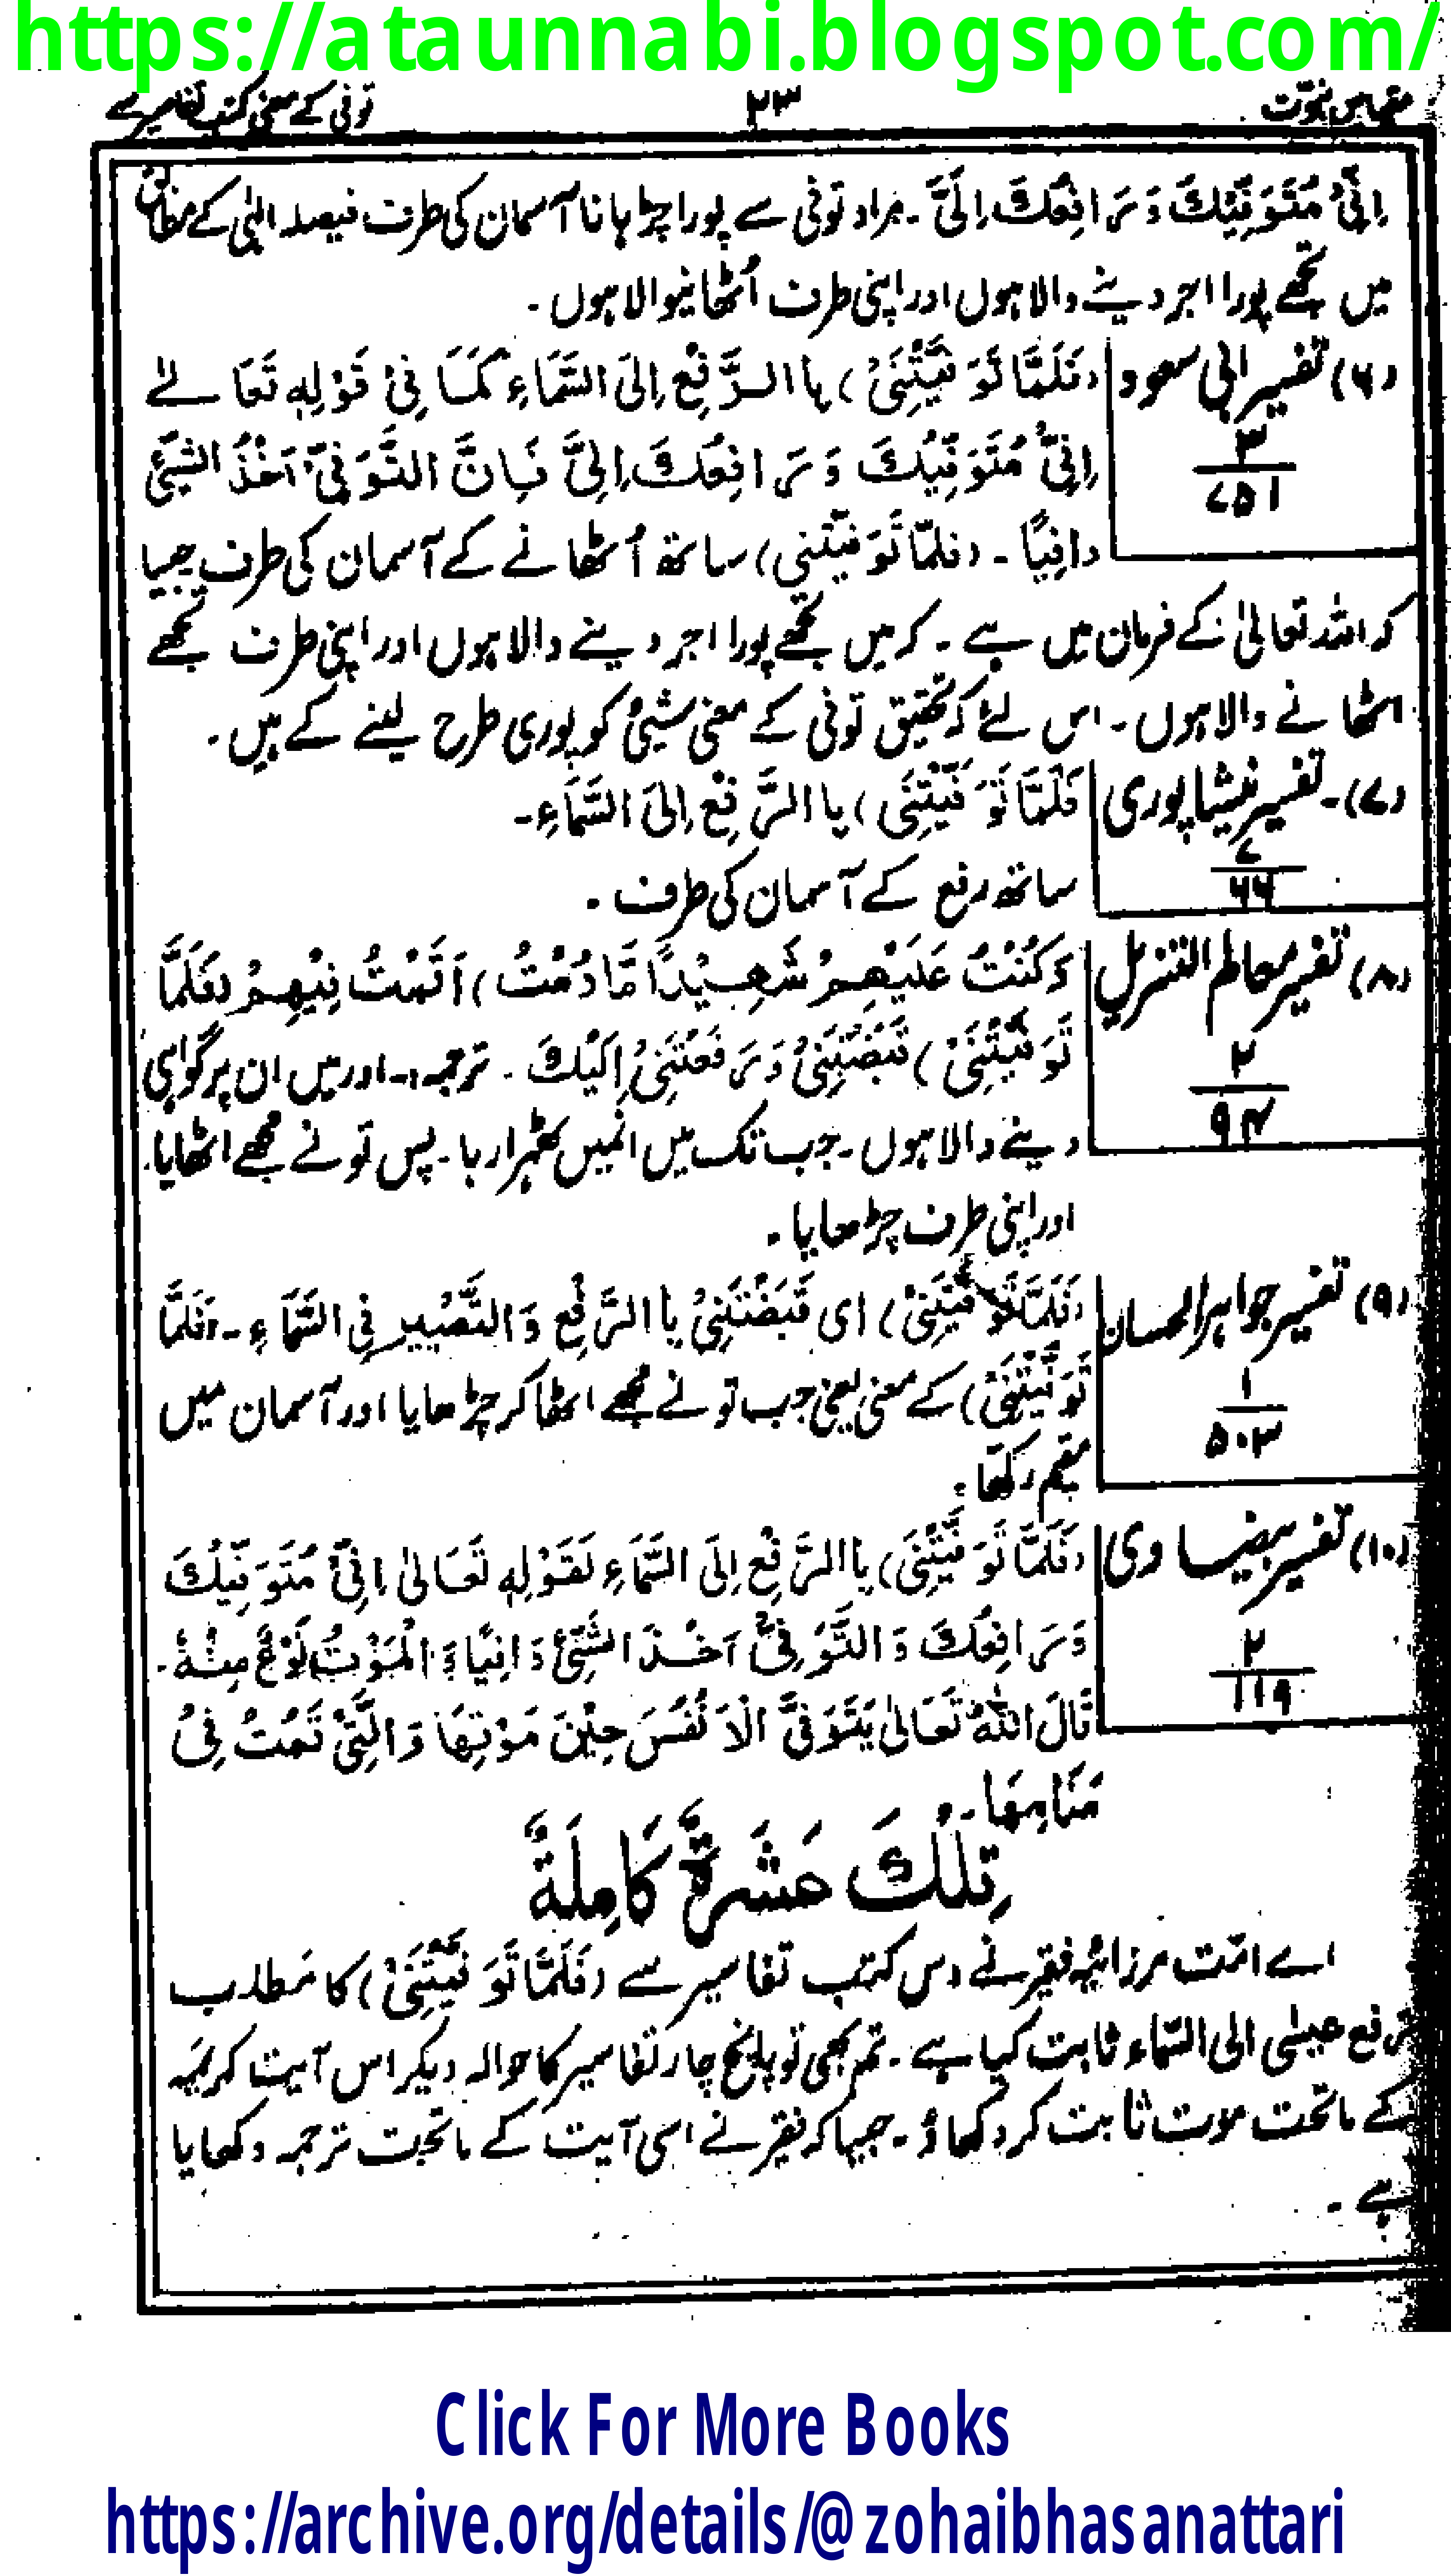 https://ataunnabi.blogspot.com/
مقیاس نبوّت
۲۳
توفی کے معنی کتب تفاسیر سے
اِنِّیْ مُتَوَفِّیْكَ وَ رَافِعُكَ اِلَیَّ ۔ مراد توفی سے پورا چڑہانا آسمان کی طرف فیصلہ الہٰی کے مطابق
میں تجھے پورا اجر دینے والا ہوں اور اپنی طرف اُٹھانیوالا ہوں ۔
(۶) تفسیر ابی سعود
۳
۷۵۱
(فَلَمَّا تَوَفَّیْتَنِیْ) باالرَّفِعِ اِلَی السَّمَاءِ كَمَا فِیْ قَوْلِهٖ تَعَالےٰ
اِنِّیْ مُتَوَفِّیْكَ وَ رَافِعُكَ اِلَیَّ فَاِنَّ التَّوَفِیَّ اَخْذُ الشَّیْئِ
وافِیًا ۔ (فلمّا تَوَفَّیْتَنِی) ساتھ اُٹھانے کے آسمان کی طرف جیسا
کہ اللہ تعالیٰ کے فرمان میں ہے ۔ کہ میں تجھے پورا اجر دینے والا ہوں اور اپنی طرف تجھے
اٹھانے والا ہوں ۔ اس لئے کہ تحقیق توفی کے معنی شیئ کو پوری طرح لینے کے ہیں ۔
(۷)۔ تفسیر نیشاپوری
۷
۶۶
فَلَمَّا تَوَفَّیْتَنِی) باالرَّفِعِ اِلَی السَّمَاءِ۔
ساتھ رفع کے آسمان کی طرف ۔
(۸) تفسیر معالم التنزیل
۲
۹۴
وَكُنْتُ عَلَیْهِمْ شَهِیْدًا مَّا دُمْتُ) اَقَمْتُ فِیْهِمْ (فَلَمَّا
تَوَفَّیْتَنِیْ) قَبَضْتَنِیْ وَ رَفَعْتَنِیْ اِلَیْكَ ۔ ترجمہ :۔ اور میں ان پر گواہی
دینے والا ہوں ۔ جب تک میں انمیں ٹھہرا رہا ۔ پس تو نے مجھے اٹھایا ۔
اور اپنی طرف چڑھایا ۔
(۹) تفسیر جواہر الحسان
۱
۵۰۳
(فَلَمَّا تَوَفَّیْتَنِیْ) ای قَبَضْتَنِیْ باالرَّفِعِ وَ التَّصْیِیرِ فِی السَّمَاءِ ۔ (فَلَمَّا
تَوَفَّیْتَنِیْ) کے معنی یعنی جب تو نے مجھے اٹھا کر چڑھایا اور آسمان میں
مقیم رکھا ۔
(۱۰) تفسیر بیضاوی
۲
۱۱۹
(فَلَمَّا تَوَفَّیْتَنِیْ) باالرَّفِعِ اِلَی السَّمَاءِ لَقَوْلِهٖ تَعَالیٰ اِنِّیْ مُتَوَفِّیْكَ
وَ رَافِعُكَ وَ التَّوَفِیْ اَخْذَ الشَّیْئِ وَافِیًا وَ الْمَوْتُ نَوْعٌ مِنْهُ ۔
قَالَ اللهُ تَعَالیٰ یَتَوَفَّی الْاَنْفُسَ حِیْنَ مَوْتِهَا وَ الَّتِیْ تَمُتْ فِیْ
مَنَامِهَا ۔
تِلْكَ عَشَرَةٌ كَامِلَةٌ
اے امّت مرزائیہ فقیر نے دس کتب تفاسیر سے (فَلَمَّا تَوَفَّیْتَنِیْ) کا مطلب
رفع عیسٰی الی السّماء ثابت کیا ہے ۔ تم بھی تو پانچ چار تفاسیر کا حوالہ دیکر اس آیت کریمہ
کے ماتحت موت ثابت کر دکھاؤ ۔ جیسا کہ فقیر نے اسی آیت کے ماتحت ترجمہ دکھایا
ہے ۔
Click For More Books
https://archive.org/details/@zohaibhasanattari